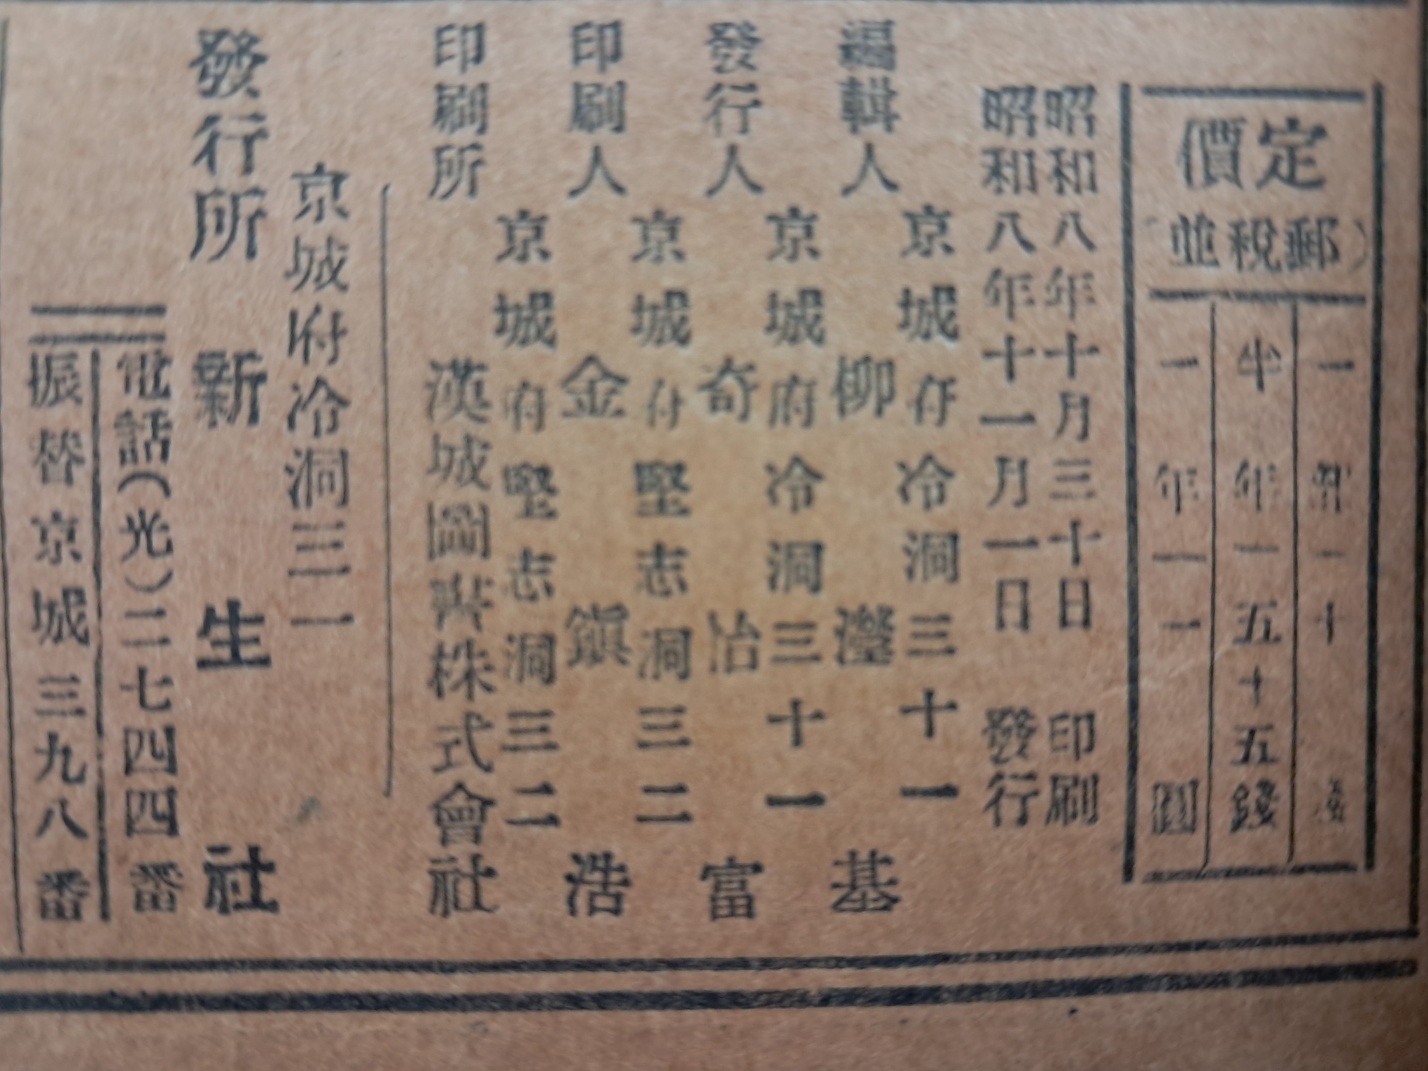 定價
(郵稅並)
一部一十錢
半年一五十五錢
一年一一圓
昭和八年十月三十日 印刷
昭和八年十一月一日 發行
京城府冷洞三十一
編輯人 柳瀅基
京城府冷洞三十一
發行人 奇怡富
京城府堅志洞三二
印刷人 金鎭浩
京城府堅志洞三二
印刷所 漢城圖書株式會社
京城府冷洞三一
發行所 新生社
電話(光)二七四四番
振替京城三九八番